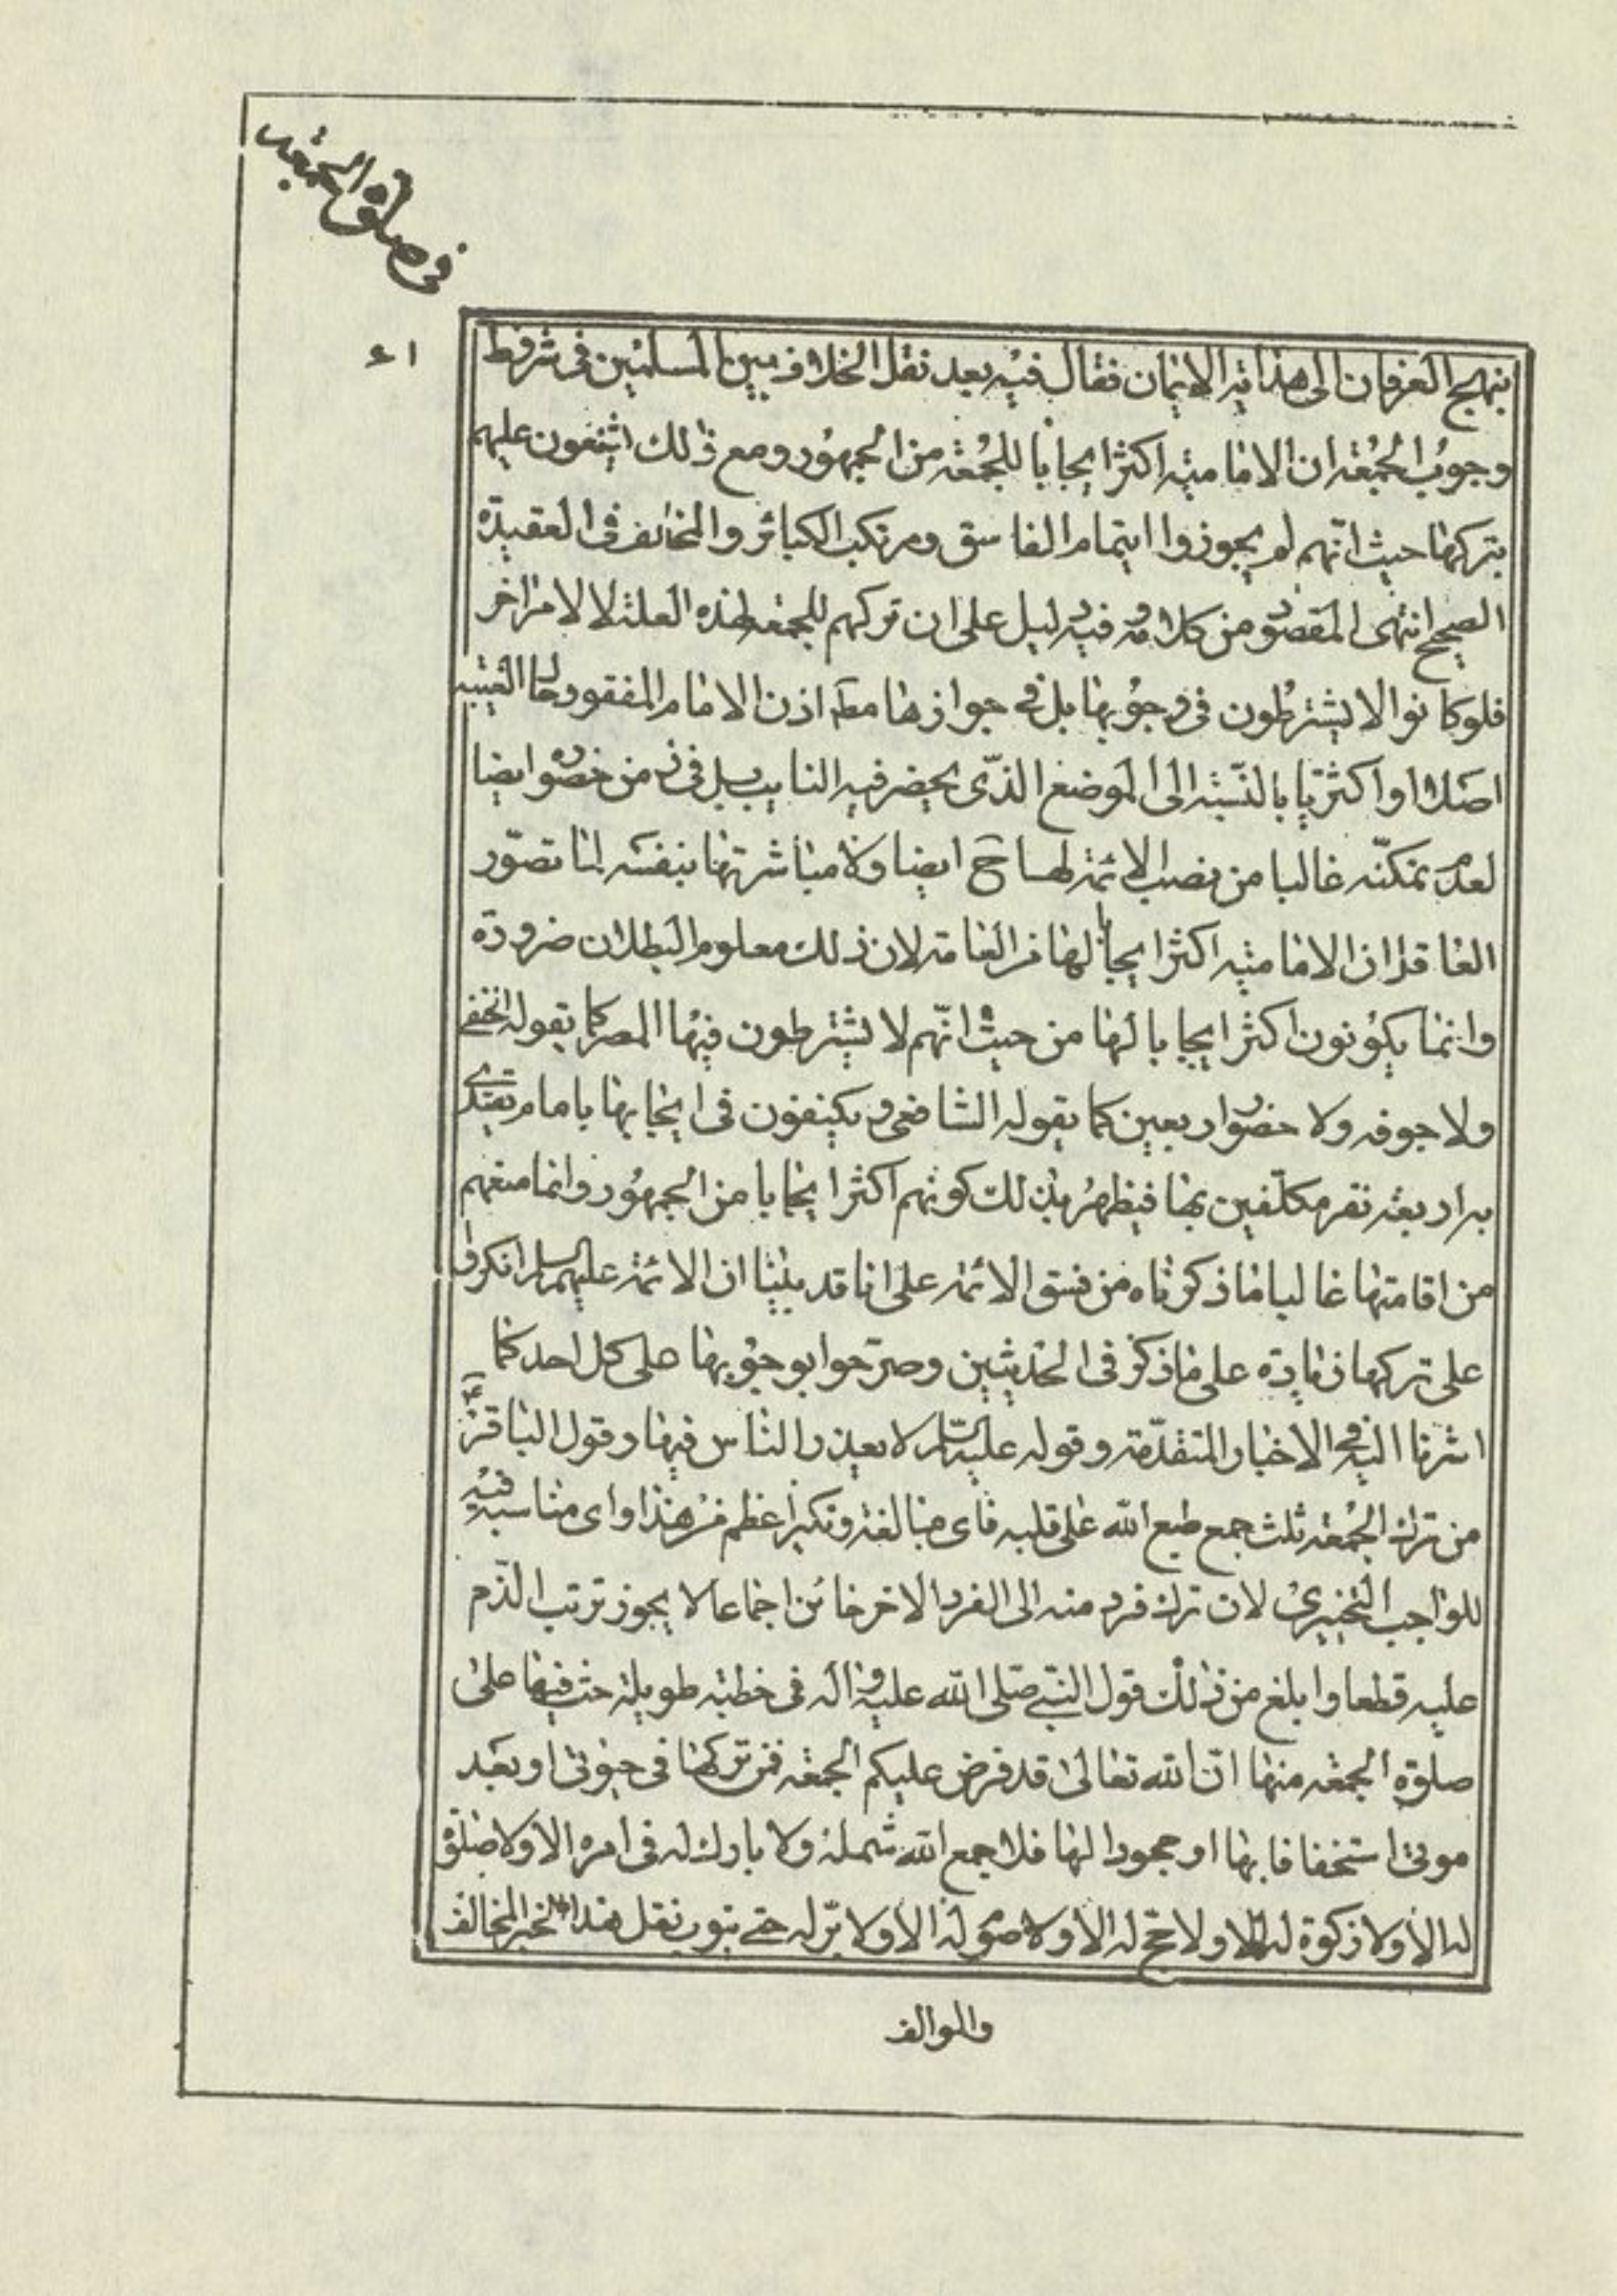 في صلوة الجمعة
٤١
بنهج العرفان الى هداية الايمان فقال فيه بعد نقل الخلاف بين المسلمين في شروط
وجوب الجمعة ان الامامية اكثر ايجابا للجمعة من الجمهور ومع ذلك يشنعون عليهم
بتركها حيث انهم لم يجوزوا ايتمام الفاسق ومرتكب الكبائر والمخالف في العقيدة
الصحيح انتهى المقصود من كلامه وفيه دليل على ان تركهم للجمعة لهذه العلة لا لامر اخر
فلو كانوا الا يشترطون في وجوبها بل في جوازها مطلقا اذن الامام المفقود حال الغيبة
اصلا او اكثريا بالنسبة الى الموضع الذي يحضر فيه النايب بل في زمن حضوره ايضا
لعدم تمكنه غالبا من نصب الائمة لها ح ايضا ولا مباشرتها بنفسه لما تصور
العاقل ان الامامية اكثر ايجابا لها من العامة لان ذلك معلوم البطلان ضرورة
وانما يكونون اكثر ايجابا لها من حيث انهم لا يشترطون فيها المصر كما يقوله الحنفي
ولا جوفه ولا حضور اربعين كما يقوله الشافعي ويكتفون في ايجابها بامام يقتدى
به اربعة نفر مكلفين بها فيظهر بذلك كونهم اكثر ايجابا من الجمهور وانما منعهم
من اقامتها غالبا ما ذكرناه من فسق الائمة على انا قد بينا ان الائمة عليهم السلام انكروا
على تركها زيادة على ما ذكر في الحديثين وصرحوا بوجوبها على كل احد كما
اشرنا اليه في الاخبار المتقدمة وقوله عليه السلام لا يعذر الناس فيها وقول الباقر ع
من ترك الجمعة ثلث جمع طبع الله على قلبه فاى مبالغة ونكير اعظم من هذا واى مناسبة فيه
للواجب التخييرى لان ترك فرد منه الى الفرد الاخر جائز اجماعا لا يجوز ترتب الذم
عليه قطعا وابلغ من ذلك قول النبي صلى الله عليه واله في خطبة طويلة حث فيها على
صلوة الجمعة منها ان الله تعالى قد فرض عليكم الجمعة فمن تركها في حيوتى او بعد
موتى استخفافا بها او جحودا لها فلا جمع الله شمله ولا بارك له في امره الا ولا صلوة
له الا ولا زكوة له الا ولا حج له الا ولا صوم له الا ولا بر له حتى يتوب نقل هذا الخبر المخالف
والموالف